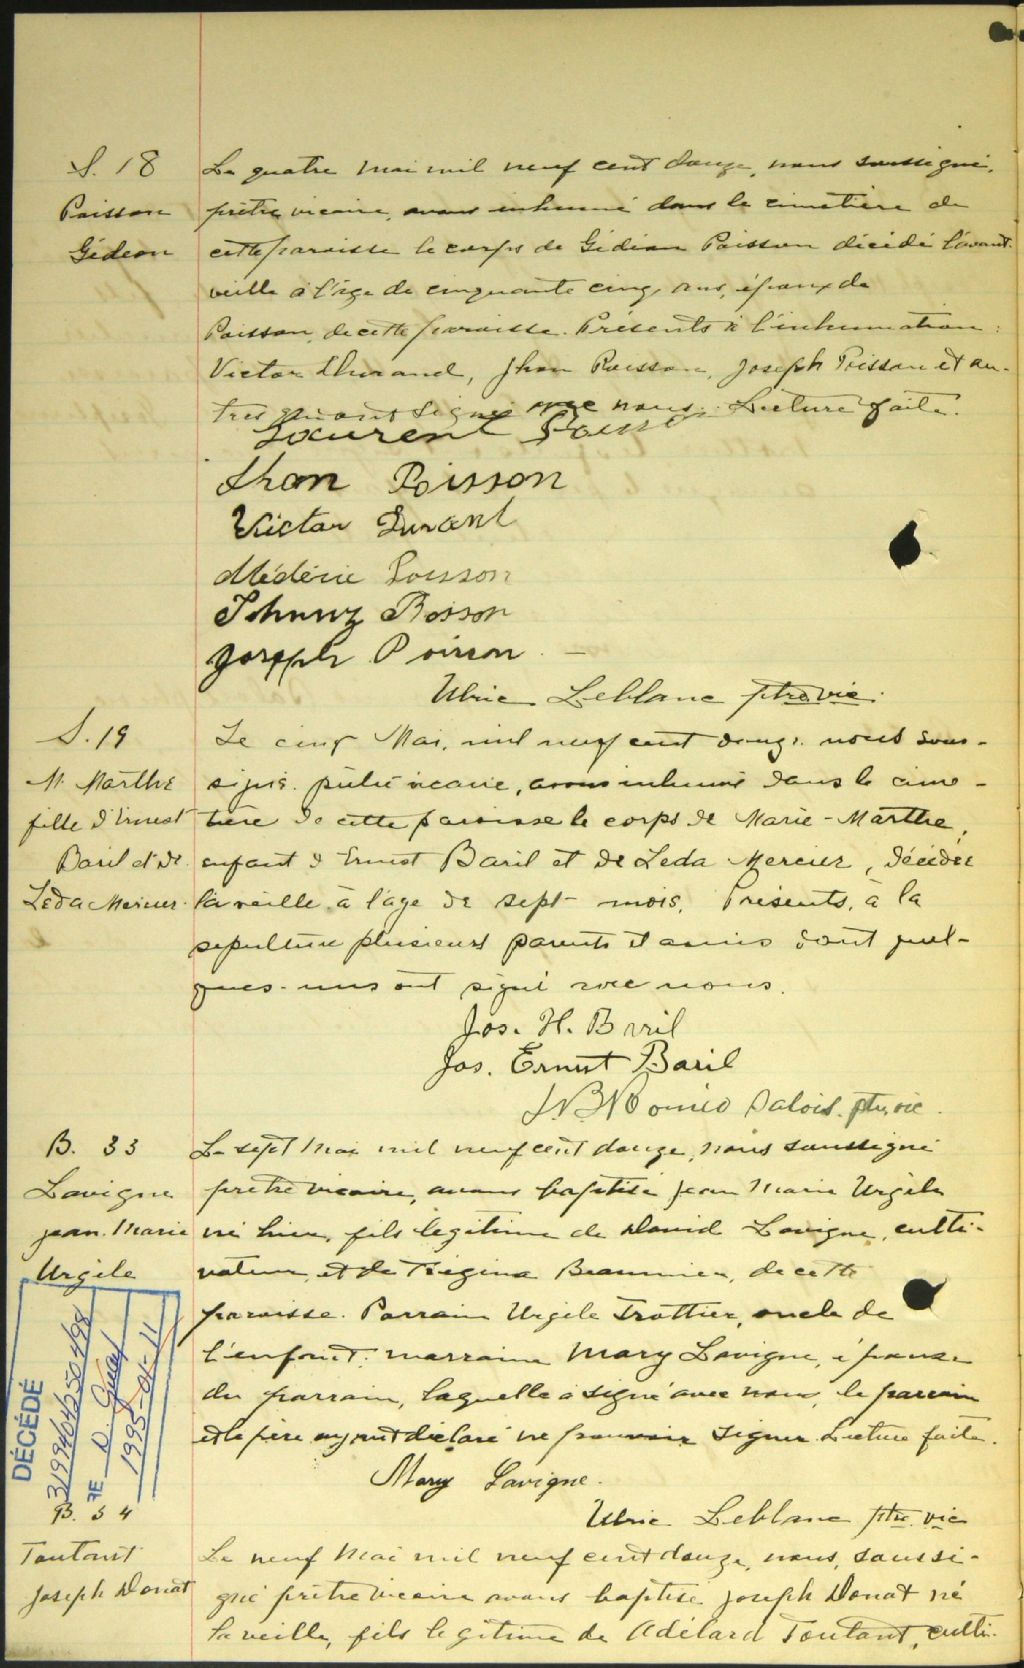 S. 18
Poisson
Gédeon
Le quatre mai mil neuf cent douze, nous soussigné,
prêtre vicaire, avons inhumé dans le cimetière de
cette paroisse le corps de Gédéon Poisson décédé l'avant-
veille à l'âge de cinquante cinq ans, époux de
Poisson, de cette paroisse. Présents à l'inhumation:
Victor Durand, Jhon Poisson, Joseph Poisson et au-
tres qui ont signé avec nous. Lecture faite.
Laurent Poisson
Jhon Poisson
Victor Durant
Médéric Poisson
Johnny Poisson
Joseph Poisson
Ulric Leblanc ptre vic.
S. 19
M. Marthe
fille d'Ernest
Baril et de
Léda Mercier
Le cinq Mai, mil neuf cent douze nous sous-
signé prêtre vicaire, avons inhumé dans le cime-
tière de cette paroisse le corps de Marie-Marthe,
enfant d'Ernest Baril et de Leda Mercier, décédée
la veille à l'age de sept mois. Présents, à la
sepulture plusieurs parents et amis dont quel-
ques-uns ont signé avec nous.
Jos. H. Baril
Jos. Ernest Baril
Roméo Salois ptre, vic.
B. 33
Lavigne
Jean. Marie
Urgèle
Le sept Mai mil neuf cent douze, nous soussigné
prêtre vicaire, avons baptisé Jean Marie Urgèle
né hier, fils legitime de David Lavigne, culti-
vateur, et de Régina Beaumier, de cette
paroisse. Parrain Urgèle Trottier, oncle de
l'enfant; marraine Mary Lavigne, épouse
du parrain, laquelle a signé avec nous, le parrain
et le père ayant déclaré ne pouvoir signer. Lecture faite.
Mary Lavigne.
Ulric Leblanc ptre vic
DÉCÉDÉ
3199404250498
1995-01-11
B. 34
Toutant
Joseph Donat
Le neuf Mai mil neuf cent douze, nous, soussi-
gné prêtre vicaire avons baptisé Joseph Donat né
la veille, fils legitime de Adélard Toutant, culti-